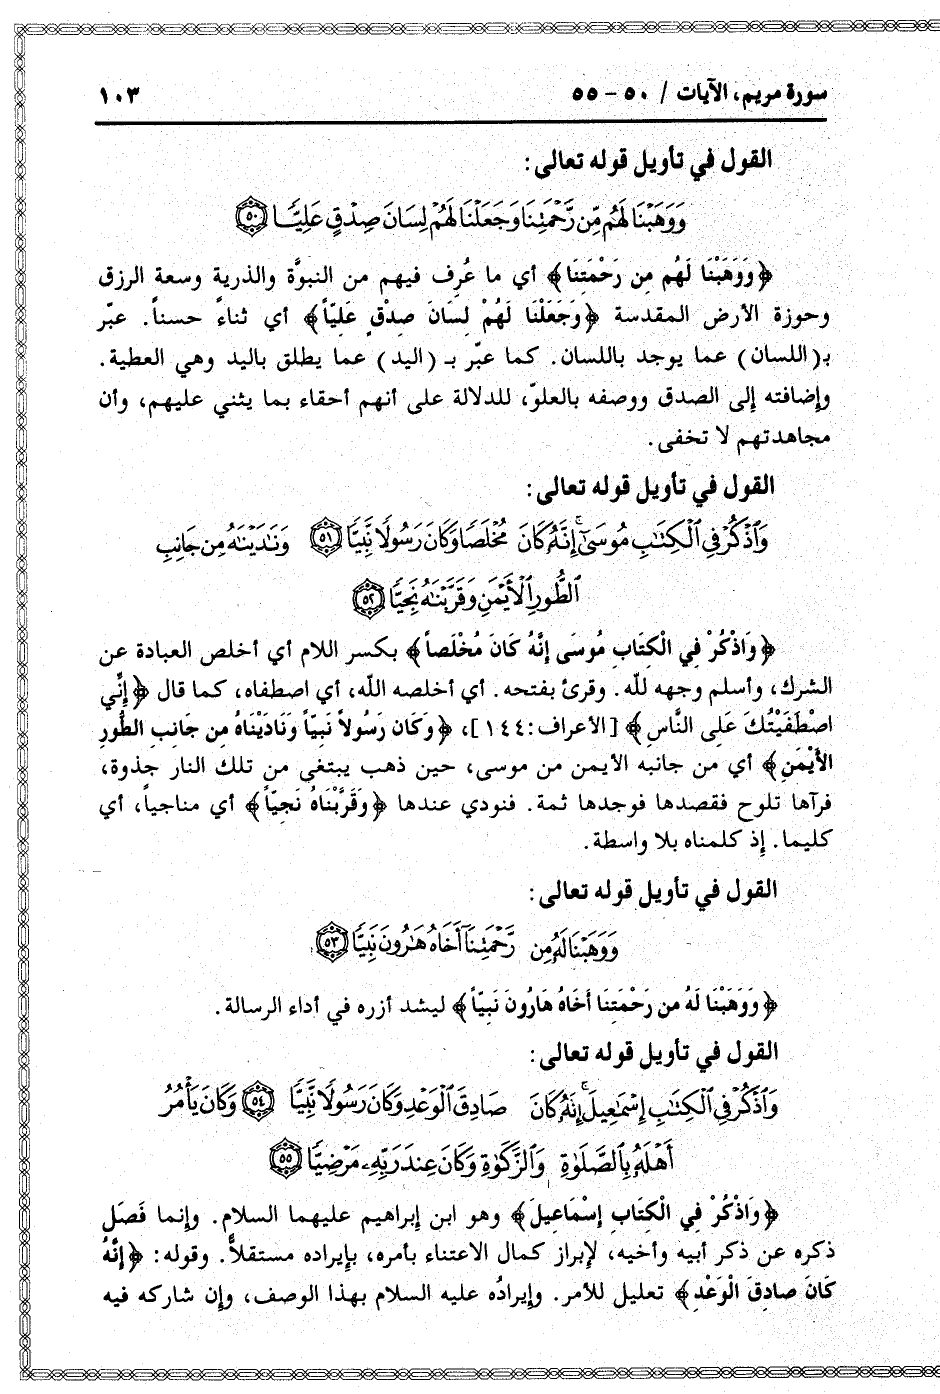 سورة مريم، الآيات / ٥٠ – ٥٥ ١٠٣
القول في تأويل قوله تعالى:
وَوَهَبْنَا لَهُم مِّن رَّحْمَتِنَا وَجَعَلْنَا لَهُمْ لِسَانَ صِدْقٍ عَلِيًّا ﴿٥٠﴾
﴿وَوَهَبْنَا لَهُم مِن رَحْمَتِنَا﴾ أي ما عُرِف فيهم من النبوَّة والذرية وسعة الرزق
وحوزة الأرض المقدسة ﴿وَجَعَلْنَا لَهُمْ لِسَانَ صِدْقٍ عَلِيّاً﴾ أي ثناءً حسناً. عبّر
بـ(اللسان) عما يوجد باللسان. كما عبّر بـ (اليد) عما يطلق باليد وهي العطية.
وإضافته إلى الصدق ووصفه بالعلوّ، للدلالة على أنهم أحقاء بما يثني عليهم، وأن
مجاهدتهم لا تخفى.
القول في تأويل قوله تعالى:
وَٱذْكُرْ فِي ٱلْكِتَٰبِ مُوسَىٰٓ إِنَّهُۥ كَانَ مُخْلَصًا وَكَانَ رَسُولًا نَّبِيًّا ﴿٥١﴾ وَنَٰدَيْنَٰهُ مِن جَانِبِ
ٱلطُّورِ ٱلْأَيْمَنِ وَقَرَّبْنَٰهُ نَجِيًّا ﴿٥٢﴾
﴿وَاذْكُرْ فِي الْكِتَابِ مُوسَى إِنَّهُ كَانَ مُخْلَصاً﴾ بكسر اللام أي أخلص العبادة عن
الشرك، وأسلم وجهه لله. وقرئ بفتحه. أي أخلصه الله، أي اصطفاه، كما قال ﴿إِنِّي
اصْطَفَيْتُكَ عَلَى النَّاسِ﴾ [الأعراف:١٤٤]، ﴿وَكَان رَسُولاً نَبِيّاً وَنَادَيْنَاهُ مِن جَانِبِ الطُّورِ
الأَيْمَنِ﴾ أي من جانبه الأيمن من موسى، حين ذهب يبتغى من تلك النار جذوة،
فرآها تلوح فقصدها فوجدها ثمة. فنودي عندها ﴿وَقَرَّبْنَاهُ نَجِيّاً﴾ أي مناجياً، أي
كليما. إذ كلمناه بلا واسطة.
القول في تأويل قوله تعالى:
وَوَهَبْنَا لَهُۥ مِن رَّحْمَتِنَآ أَخَاهُ هَٰرُونَ نَبِيًّا ﴿٥٣﴾
﴿وَوَهَبْنَا لَهُ من رَحْمَتِنَا أَخَاهُ هَارُونَ نَبِيّاً﴾ ليشد أزره في أداء الرسالة.
القول في تأويل قوله تعالى:
وَٱذْكُرْ فِي ٱلْكِتَٰبِ إِسْمَٰعِيلَ إِنَّهُۥ كَانَ صَادِقَ ٱلْوَعْدِ وَكَانَ رَسُولًا نَّبِيًّا ﴿٥٤﴾ وَكَانَ يَأْمُرُ
أَهْلَهُۥ بِٱلصَّلَوٰةِ وَٱلزَّكَوٰةِ وَكَانَ عِندَ رَبِّهِۦ مَرْضِيًّا ﴿٥٥﴾
﴿وَاذْكُرْ فِي الْكِتَابِ إِسْمَاعِيلَ﴾ وهو ابن إبراهيم عليهما السلام. وإنما فَصَل
ذكره عن ذكر أبيه وأخيه، لإبراز كمال الاعتناء بأمره، بإيراده مستقلاًّ. وقوله: ﴿إِنَّهُ
كَانَ صادِقَ الْوَعْدِ﴾ تعليل للأمر. وإيرادُه عليه السلام بهذا الوصف، وإن شاركه فيه